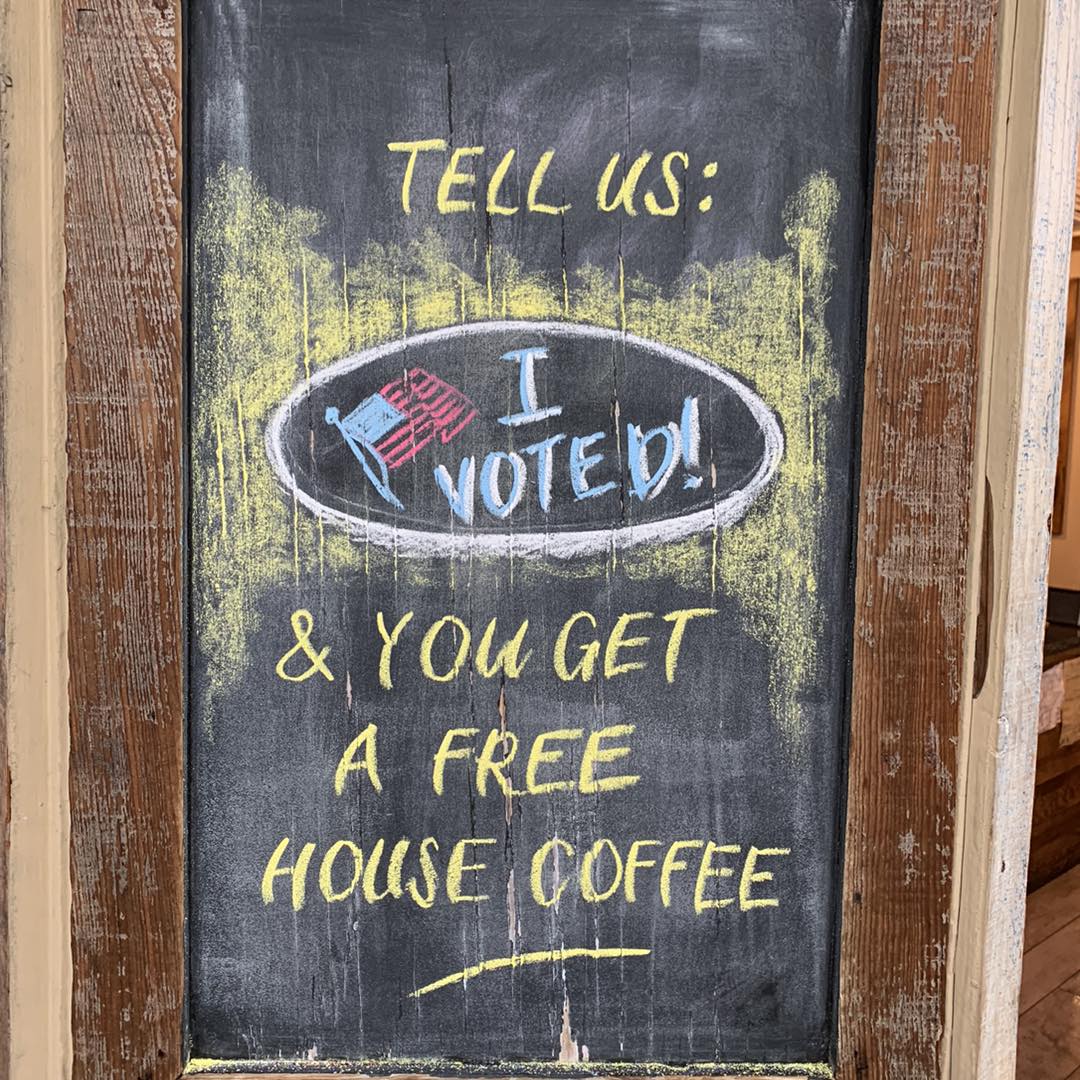 TELL US:
I
VOTED!
& YOU GET
A FREE
HOUSE COFFEE